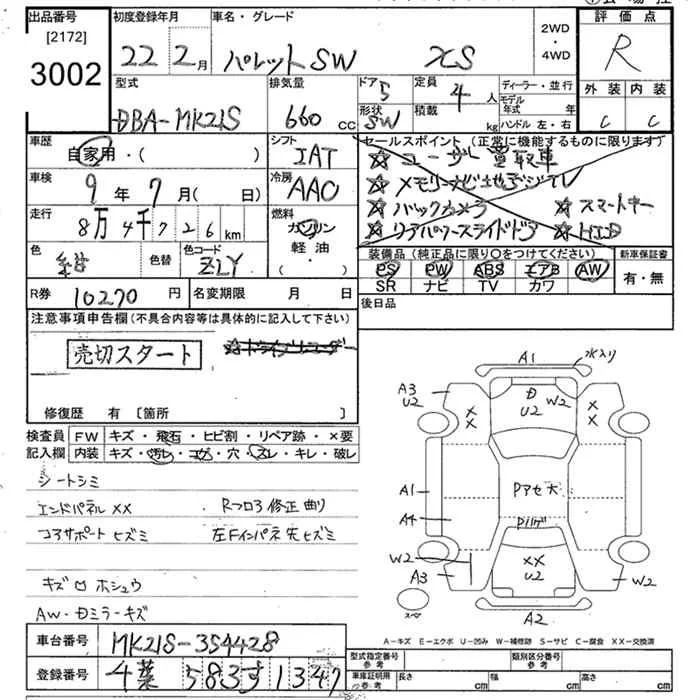 出品番号
[2172]
3002
初度登録年月
22 2月
車名・グレード
パレットSW XS
2WD
・
4WD
評価点
R
型式
DBA-MK21S
排気量
660 CC
ドア
5
形状
SW
定員
4 人
積載
kg
ディーラー・並行
モデル年式 年
ハンドル 左・右
外装
C
内装
C
車歴
自家用・( )
シフト
IAT
車検
9年 7月(日)
冷房
AAC
走行
8万4千726km
燃料
ガソリン
軽油・
・
色
色替
色コード
ZLY
セールスポイント(正常に機能するものに限ります)
☆ユーザー買取車
☆メモリーナビ地デジTV
☆バックカメラ ☆スマートキー
☆リアパワースライドドア ☆HID
装備品(純正品に限り○をつけてください)
PS PW ABS エアB AW
SR ナビ TV カワ
新車保証書
有・無
R券 10270円
名変期限 月 日
後日品
注意事項申告欄(不具合内容等は具体的に記入して下さい)
売切スタート
☆ドライブレコーダー
修復歴 有 [箇所 ]
検査員記入欄
FW キズ・飛石・ヒビ割・リペア跡・×要
内装 キズ・汚レ・コゲ・穴・スレ・キレ・破レ
シートシミ
エンドパネル ×× Rフロア修正 曲り
コアサポート ヒズミ 左Fインパネ先ヒズミ
キズ ホシュウ
AW・ミラーキズ
車台番号 MK21S-354428
登録番号 千葉 583す1347
A1 水入り
A3
U2
×
×
U2
W2
×
×
A1
A4
Pアセ大
Pハゲ
W2
A3
××
U2
W2
A2
スペア
A-キズ E-エクボ U-凹み W-補修跡 S-サビ C-腐食 XX-交換済
型式指定番号
参考
類別区分番号
参考
車庫証明用
参考
長さ cm
幅 cm
高さ cm